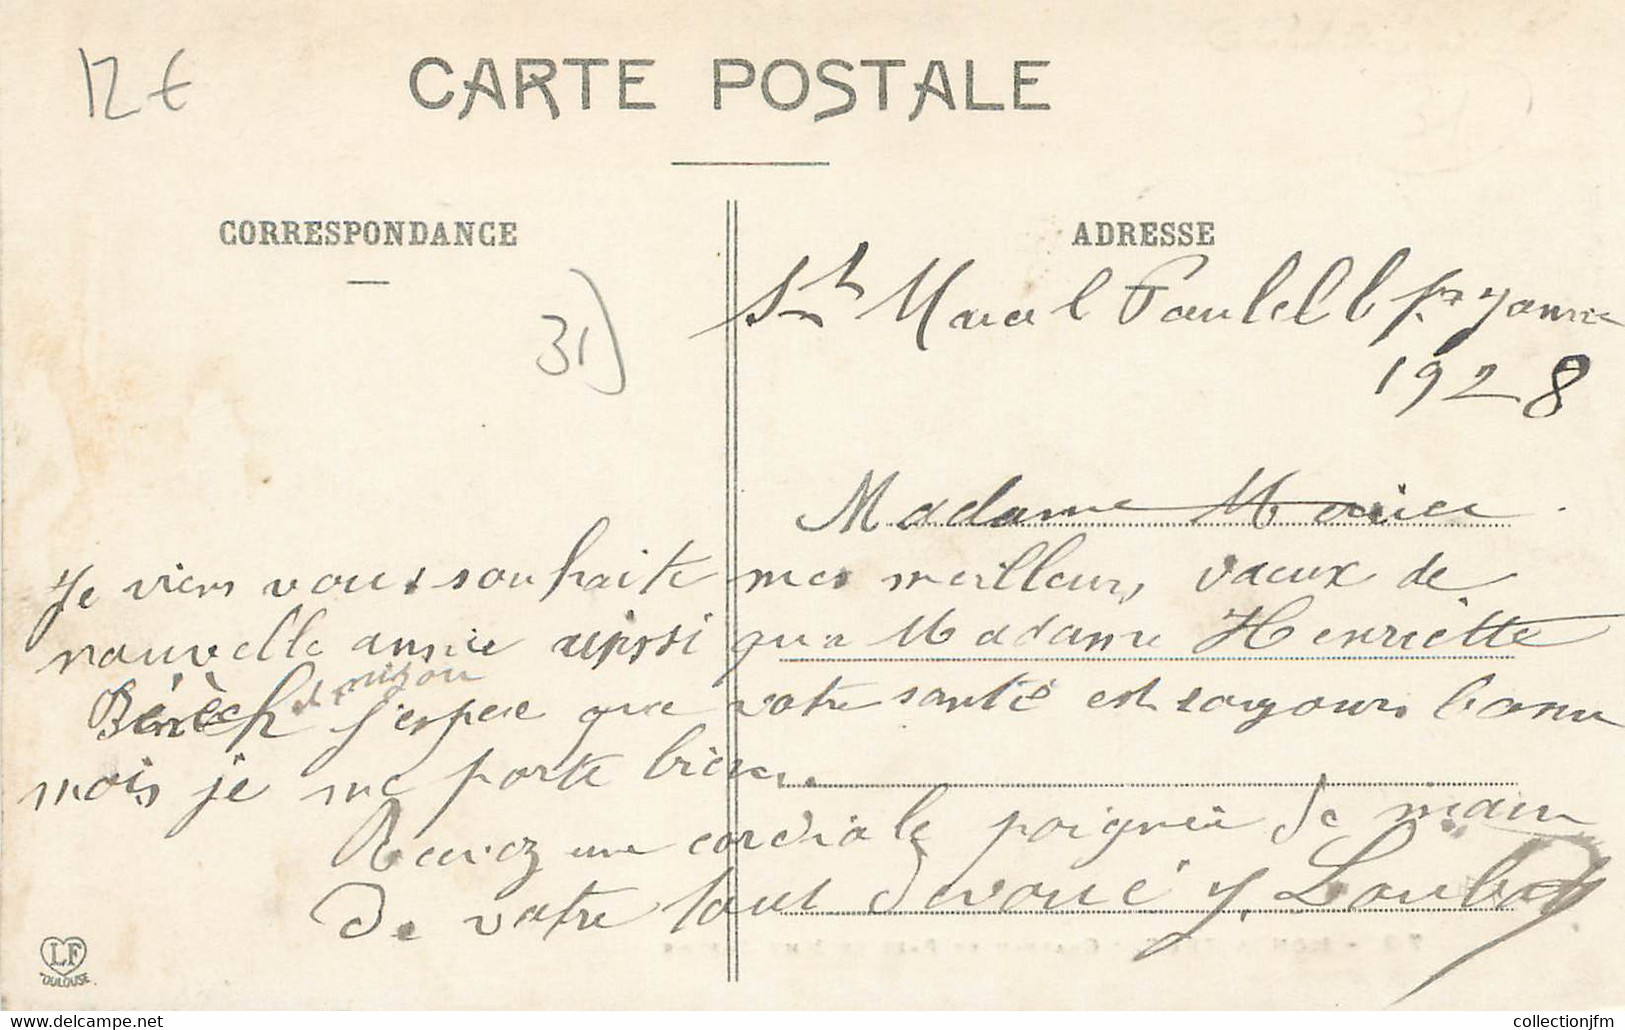 12 €
CARTE POSTALE
CORRESPONDANCE
ADRESSE
31)
St Marcel Paulel le 1er Janvier
1928
Madame
Je viens vous souhaite mes meilleurs vaeux de
nouvelle année ainssi que Madame Henriette
j'espere que votre santé est togours bonne
mois je me porte bien.
Recevez une cordiale poignée de main
de votre tout devoué Y. Loubat
LF
TOULOUSE
collectionjfm